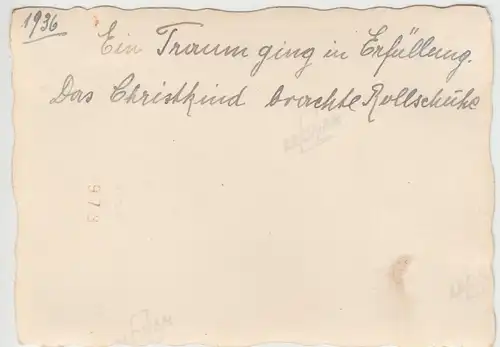 1936
Ein Traum ging in Erfüllung.
Das Christkind brachte Rollschuhe
973